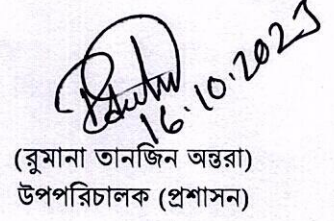 16.10.2023
(রুমানা তানজিন অন্তরা)
উপপরিচালক (প্রশাসন)